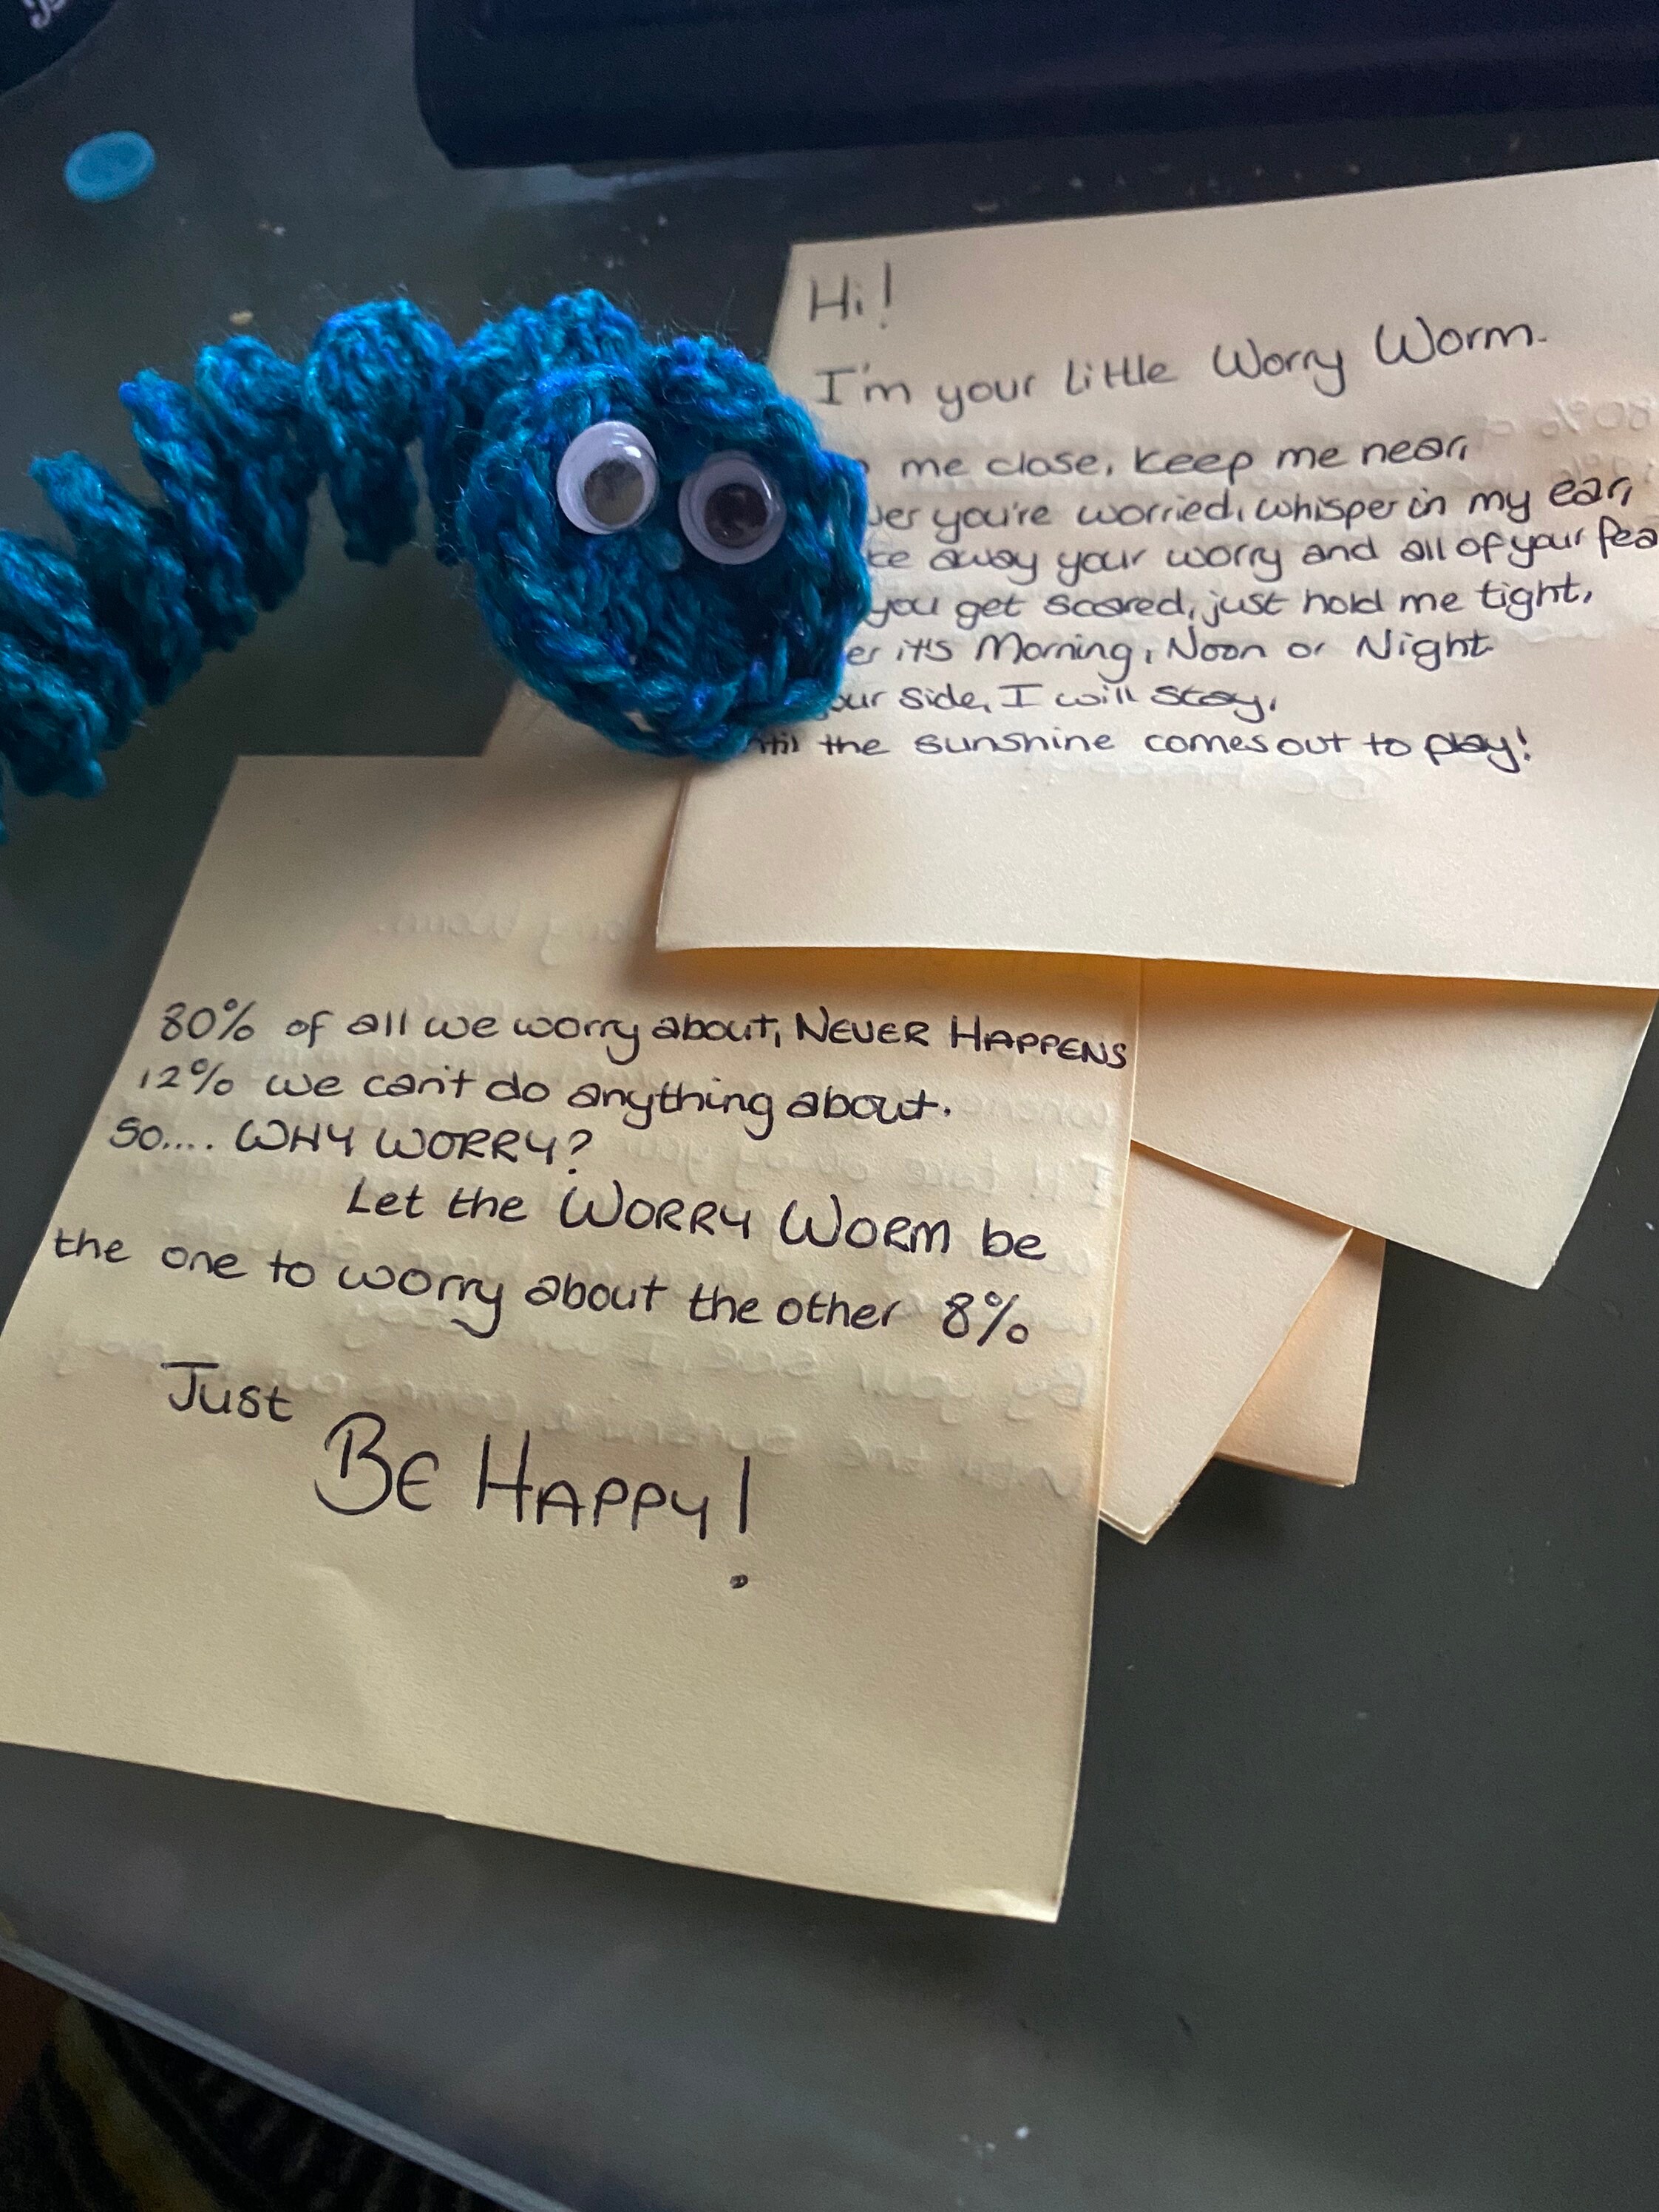 Hi!
I'm your Little Worry Worm.
me close, keep me near,
you're worried, whisper in my ear,
away your worry and all of your
you get scared, just hold me tight,
it's Morning, Noon or Night
side, I will stay,
the sunshine comes out to play!
80% of all we worry about, NEVER HAPPENS
12% we can't do anything about.
SO.... WHY WORRY?
Let the WORRY WORM be
the one to worry about the other 8%
Just
BE HAPPY!